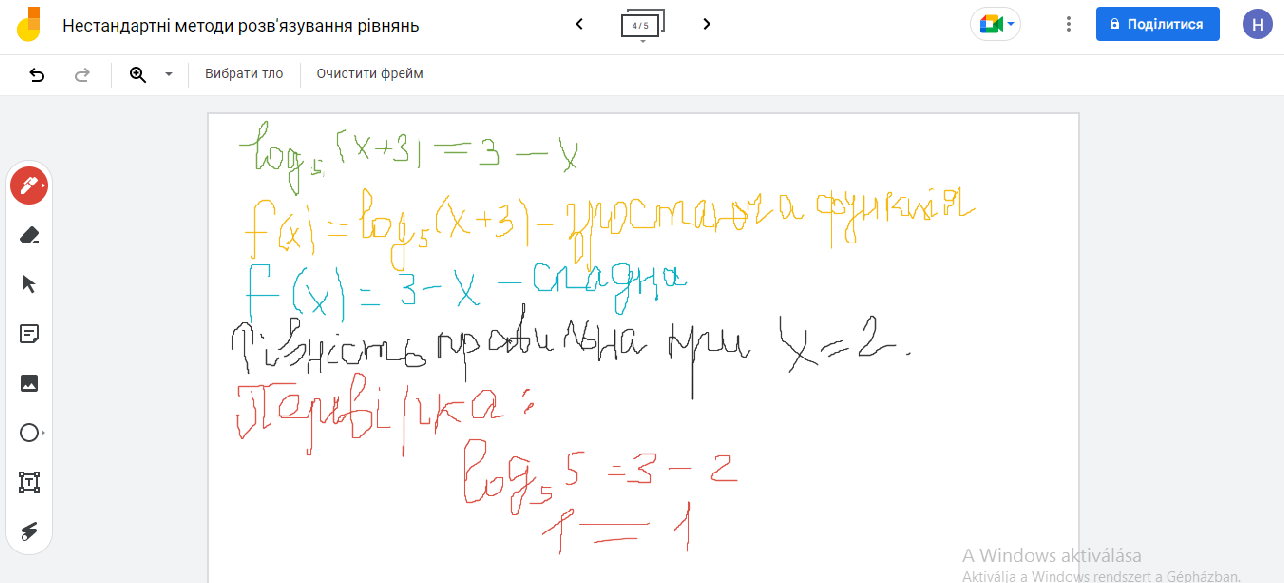 Нестандартні методи розв'язування рівнянь
4 / 5
Поділитися
Н
Вибрати тло
Очистити фрейм
log₅(x+3) = 3 − x
f(x) = log₅(x+3) − зростаюча функція
f(x) = 3 − x − спадна
Рівність правильна при x=2.
Перевірка:
log₅ 5 = 3 − 2
1 = 1
A Windows aktiválása
Aktiválja a Windows rendszert a Gépházban.